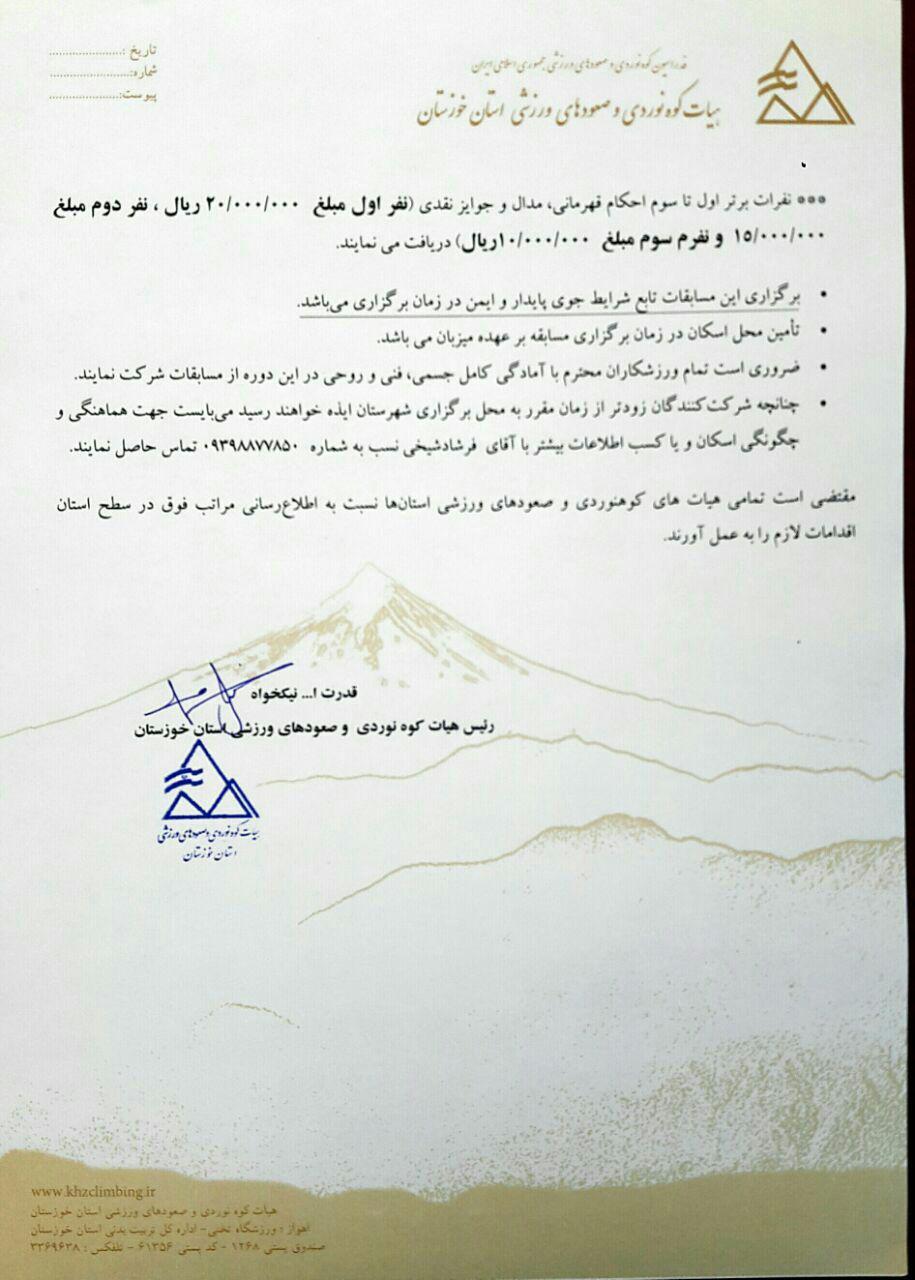 فدراسیون کوه‌نوردی و صعودهای ورزشی جمهوری اسلامی ایران
هیات کوه نوردی و صعودهای ورزشی استان خوزستان
تاریخ :......................
شماره:......................
پیوست:....................
*** نفرات برتر اول تا سوم احکام قهرمانی، مدال و جوایز نقدی (نفر اول مبلغ ۲۰/۰۰۰/۰۰۰ ریال ، نفر دوم مبلغ
۱۵/۰۰۰/۰۰۰ و نفرم سوم مبلغ ۱۰/۰۰۰/۰۰۰ریال) دریافت می نمایند.
• برگزاری این مسابقات تابع شرایط جوی پایدار و ایمن در زمان برگزاری می‌باشد.
• تأمین محل اسکان در زمان برگزاری مسابقه بر عهده میزبان می باشد.
• ضروری است تمام ورزشکاران محترم با آمادگی کامل جسمی، فنی و روحی در این دوره از مسابقات شرکت نمایند.
• چنانچه شرکت‌کنندگان زودتر از زمان مقرر به محل برگزاری شهرستان ایذه خواهند رسید می‌بایست جهت هماهنگی و
چگونگی اسکان و یا کسب اطلاعات بیشتر با آقای فرشادشیخی نسب به شماره ۰۹۳۹۸۸۷۷۸۵۰ تماس حاصل نمایند.
مقتضی است تمامی هیات های کوهنوردی و صعودهای ورزشی استان‌ها نسبت به اطلاع‌رسانی مراتب فوق در سطح استان
اقدامات لازم را به عمل آورند.
قدرت ا... نیکخواه
رئیس هیات کوه نوردی و صعودهای ورزشی استان خوزستان
هیات کوه نوردی و صعودهای ورزشی
استان خوزستان
www.khzclimbing.ir
هیات کوه نوردی و صعودهای ورزشی استان خوزستان
اهواز : ورزشگاه تختی- اداره کل تربیت بدنی استان خوزستان
صندوق پستی ۱۲۶۸ - کد پستی ۶۱۳۵۶ - تلفکس : ۳۳۶۹۶۳۸